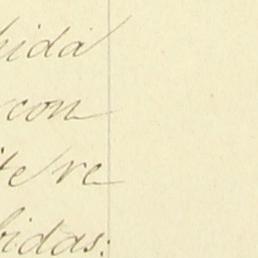 hida
con
te re
bidas: